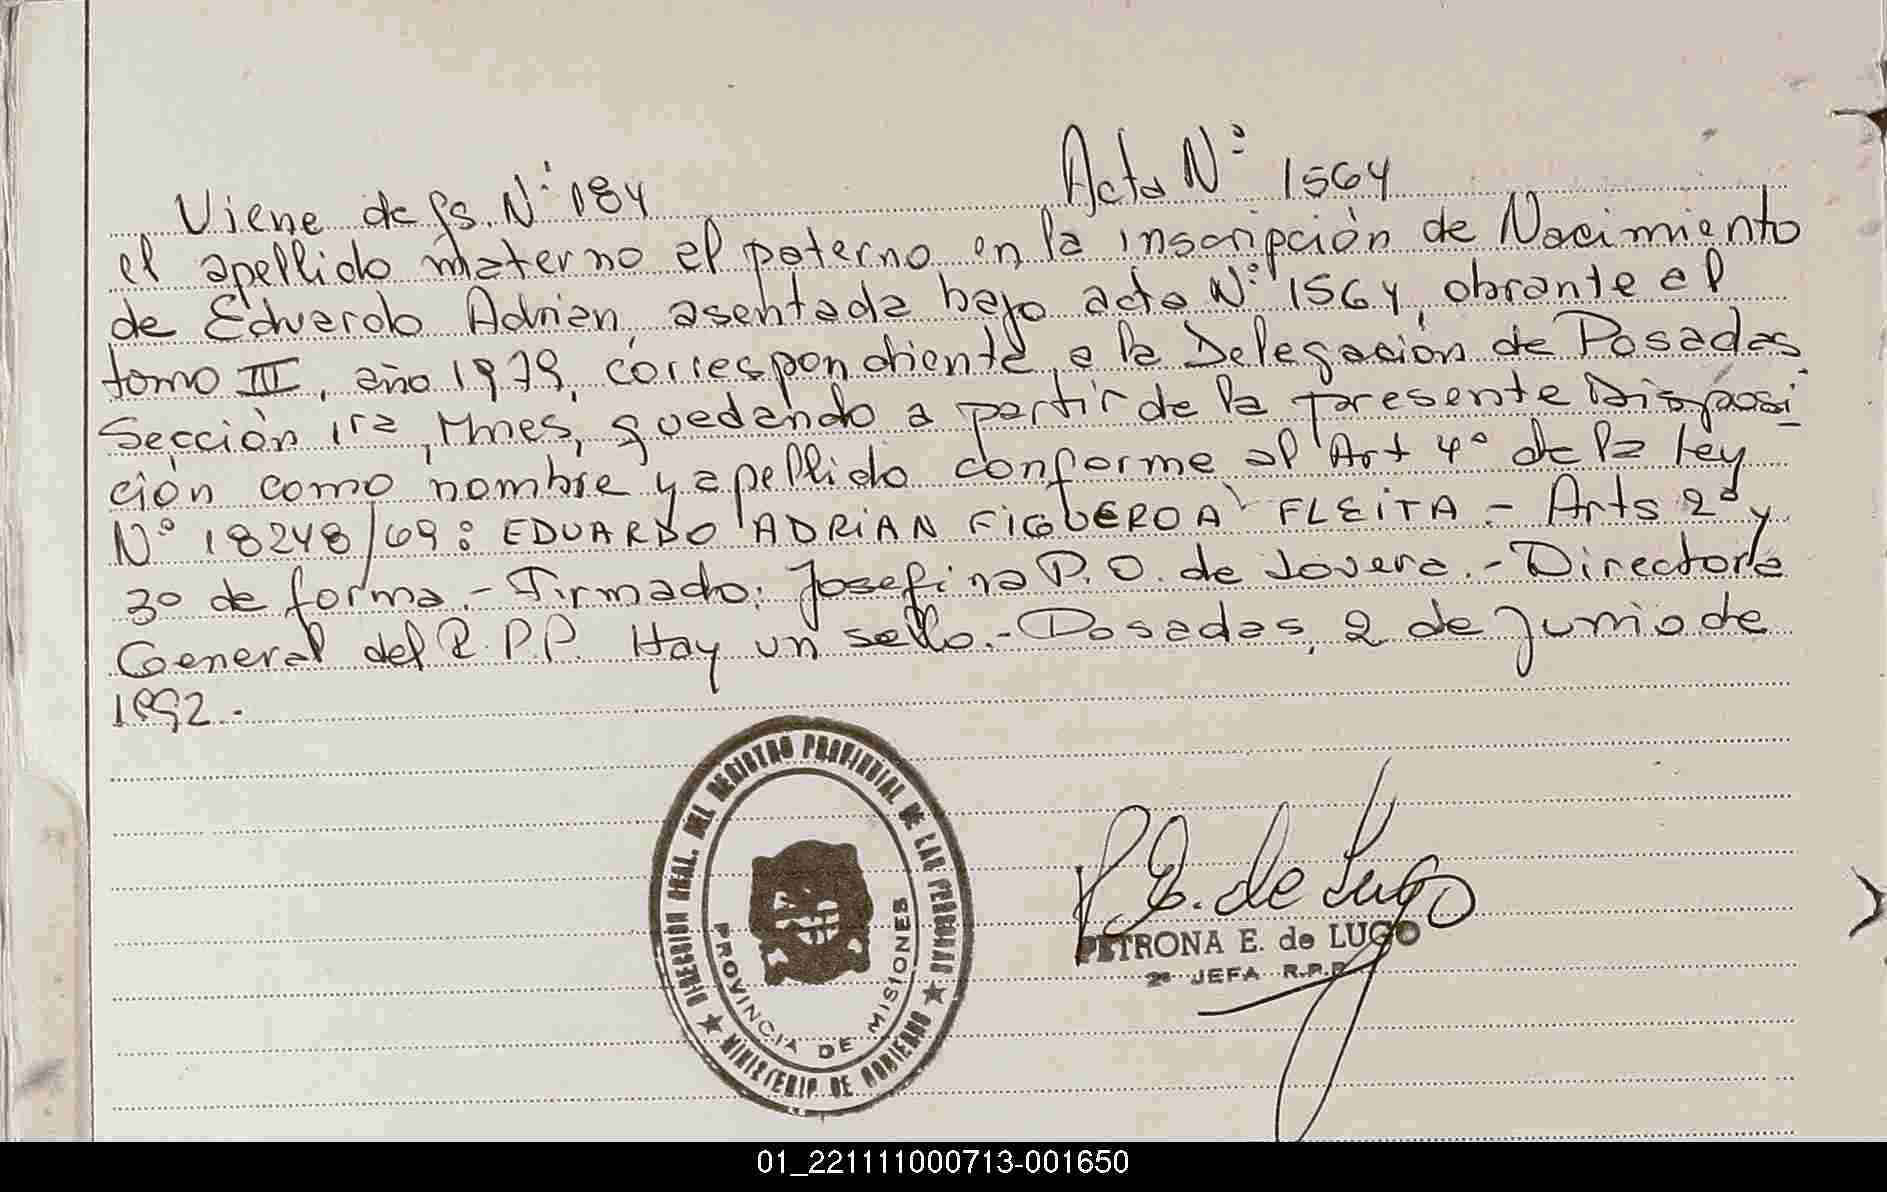 Viene de fs. Nº 184 Acta Nº 1564
el apellido materno al paterno en la inscripción de Nacimiento
de Eduardo Adrian asentada bajo acta Nº 1564, obrante el
tomo III, año 1979, correspondiente a la Delegación de Posadas
Sección 1ra, Mnes, quedando a partir de la presente Disposi
ción como nombre y apellido conforme al Art 4º de la Ley
Nº 18248/69: EDUARDO ADRIAN FIGUEROA FLEITA - Arts 2º y
3º de forma.- Firmado: Josefina P.O. de Lovera.- Directora
General del R.P.P. Hay un sello.- Posadas, 2 de Junio de
1992.-
DIRECCION GRAL. DEL REGISTRO PROVINCIAL DE LAS PERSONAS
PROVINCIA DE MISIONES
MINISTERIO DE GOBIERNO
P E. de Lugo
PETRONA E. de LUGO
2º JEFA R.P.P.
01_221111000713-001650